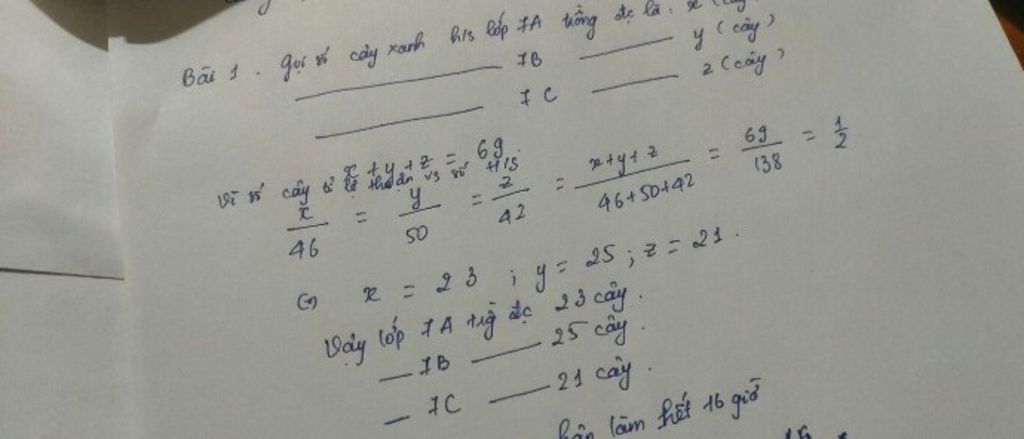 Bài 1. Gọi số cây xanh h/s lớp 7A trồng đc là: x (cây
7B y (cây)
7C z (cây)
x + y + z = 69.
Vì số cây tỉ lệ thuận vs số h/s
x/46 = y/50 = z/42 = x+y+z/46+50+42 = 69/138 = 1/2
x = 23 ; y = 25 ; z = 21.
Vậy lớp 7A trg đc 23 cây.
7B 25 cây.
7C 21 cây.
làm hết 16 giờ